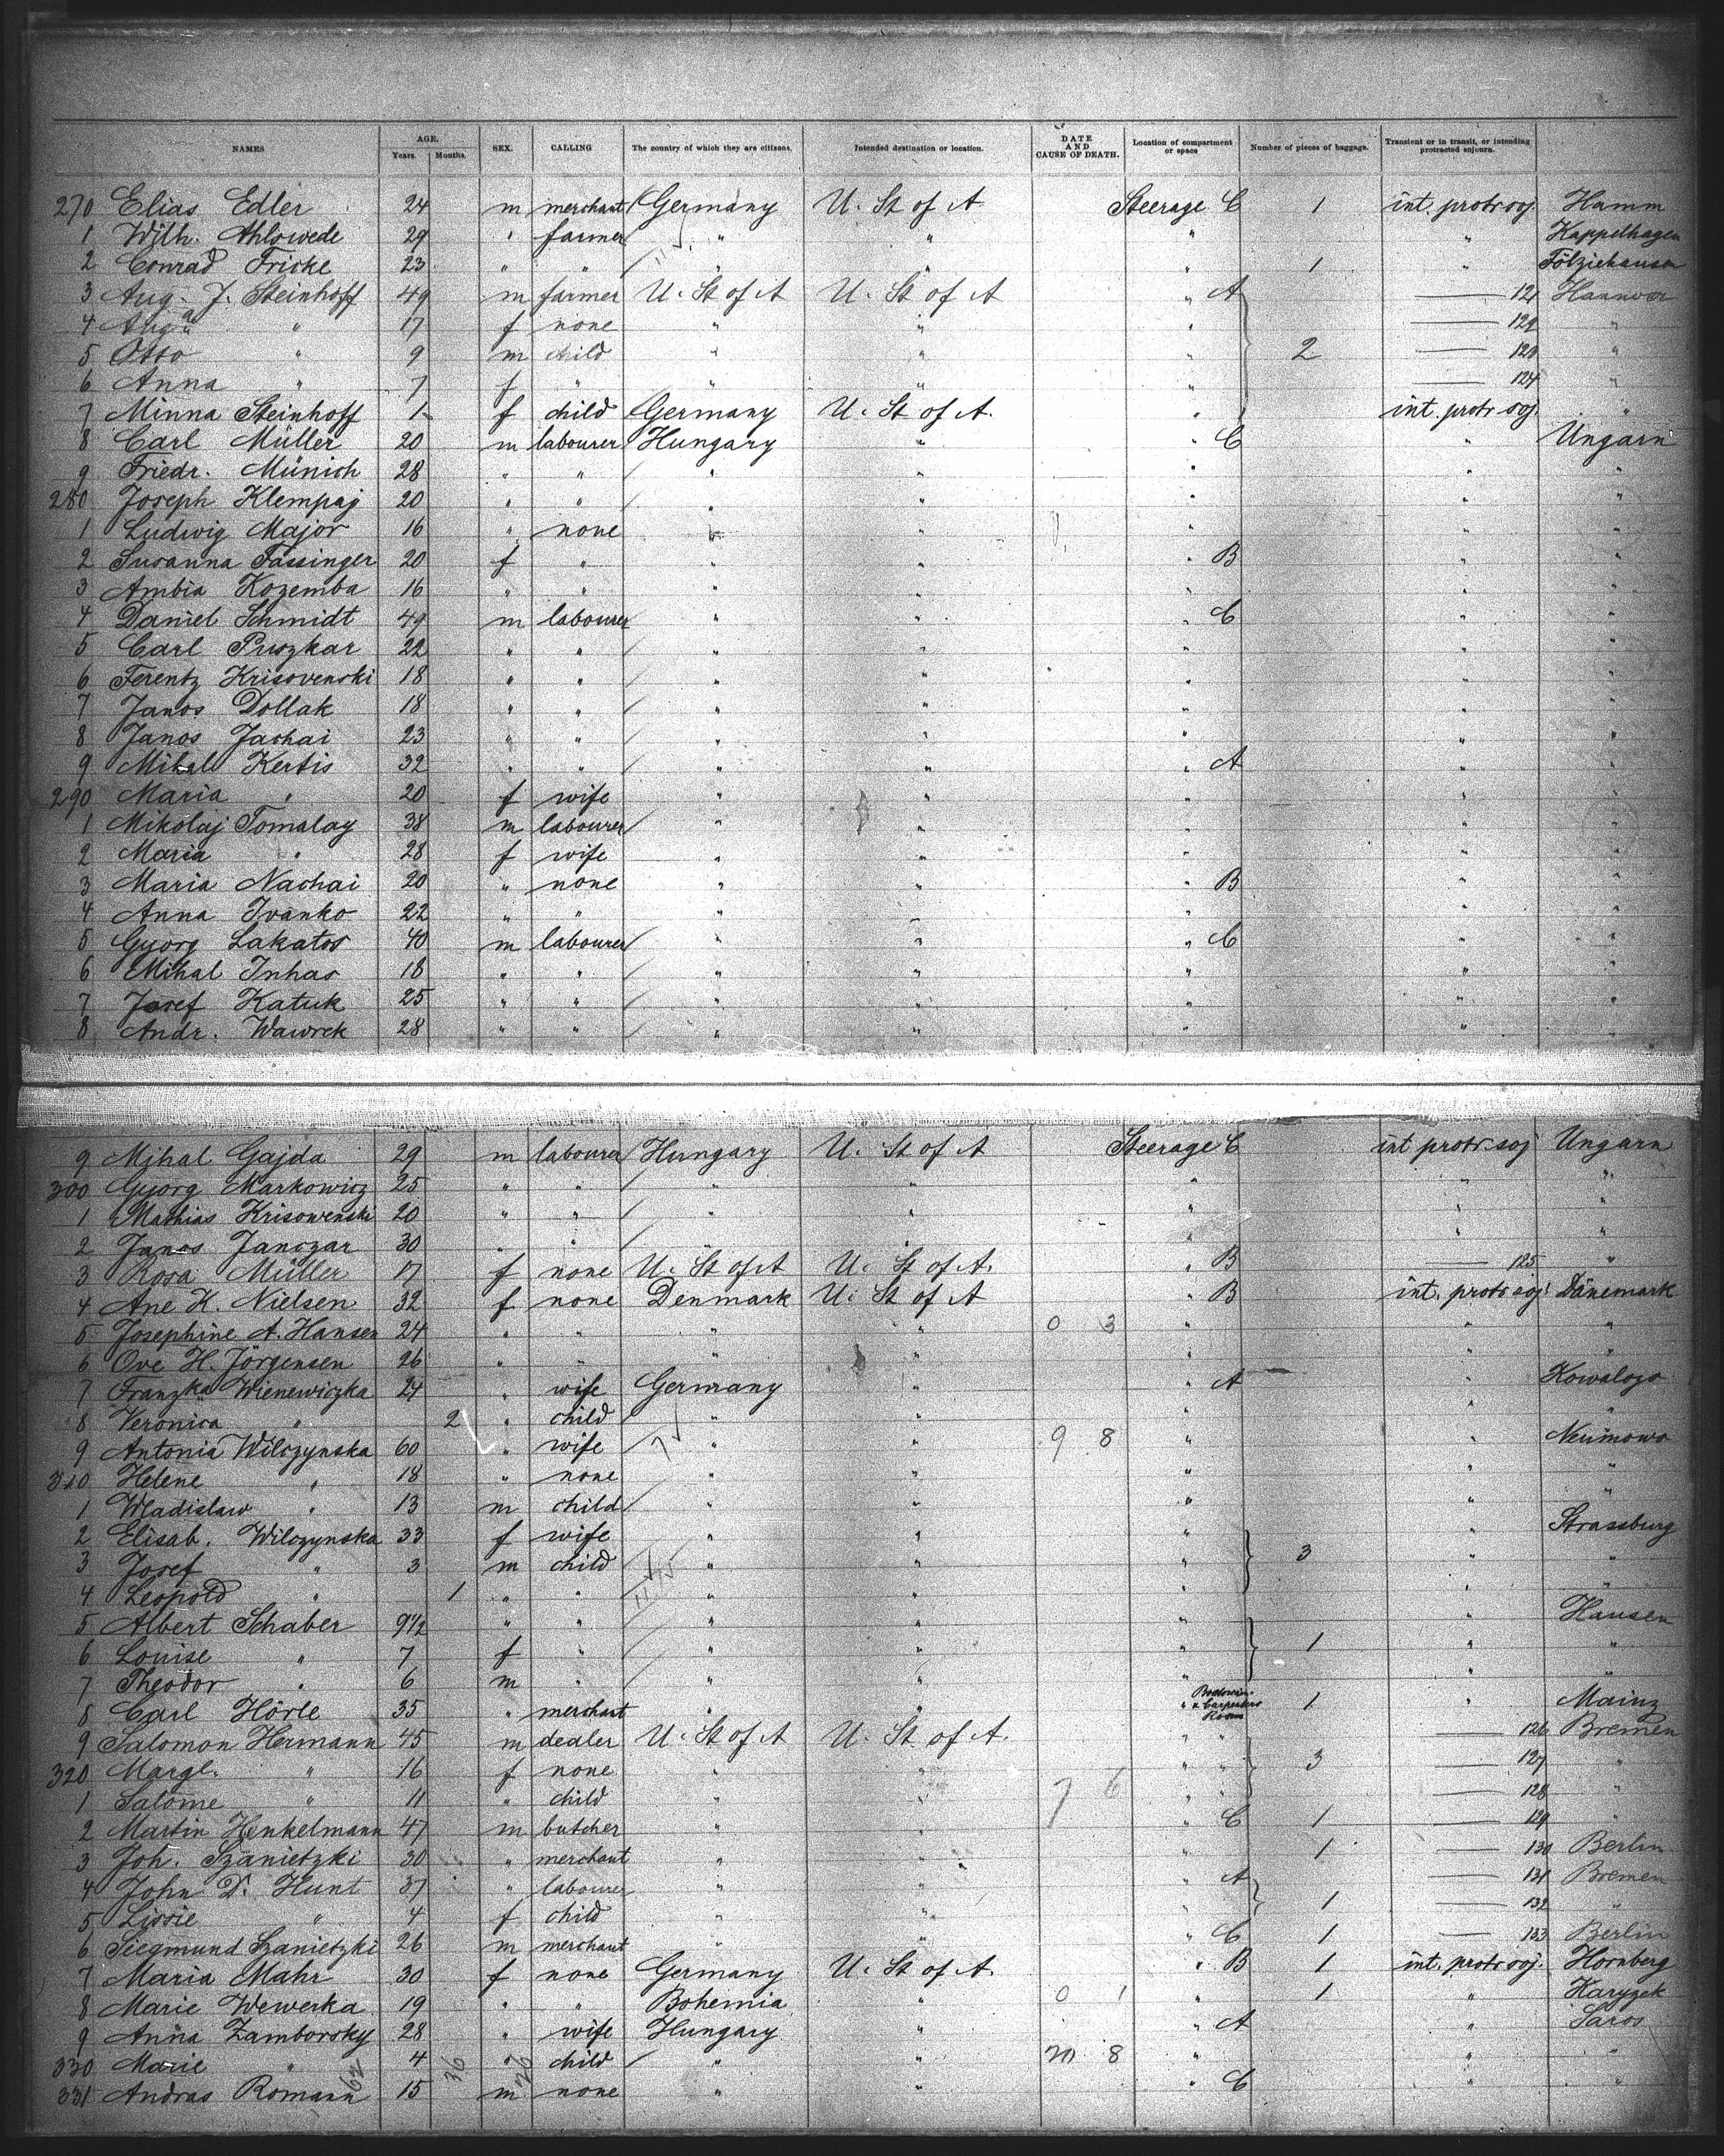 NAMES AGE. Years. Months. SEX. CALLING The country of which they are citizens. Intended destination or location. DATE AND CAUSE OF DEATH. Location of compartment or space Number of pieces of baggage. Transient or in transit, or intending protracted sojourn.
270 Elias Edler 24 m merchant Germany U. St of A Steerage C 1 int. protr soj. Hamm
1 Wilh. Ahlswede 29 " farmer " " " " Kappelhagen
2 Conrad Fricke 23 " " " " " 1 " Fölziehausen
3 Aug. J. Steinhoff 49 m farmer U. St of A U. St of A " A 121 Hannover
4 Aug.a " 17 f none " " " 122 "
5 Otto " 9 m child " " " 2 123 "
6 Anna " 7 f " " " " 124 "
7 Minna Steinhoff 1 f child Germany U. St of A. " int. protr soj. "
8 Carl Müller 20 m labourer Hungary " " C " Ungarn
9 Friedr. Münich 28 " " " " " " "
280 Joseph Klempaj 20 " " " " " " "
1 Ludwig Major 16 " none " " " " "
2 Susanna Fassinger 20 f " " " " B " "
3 Ambia Kozemba 16 " " " " " " "
4 Daniel Schmidt 49 m labourer " " " C " "
5 Carl Puszkar 22 " " " " " " "
6 Ferentz Krisovenski 18 " " " " " " "
7 Janos Dollak 18 " " " " " " "
8 Janos Jachai 23 " " " " " " "
9 Mihal Kertis 32 " " " " " A " "
290 Maria " 20 f wife " " " " "
1 Mikolaj Tomalay 38 m labourer " " " " "
2 Maria " 28 f wife " " " " "
3 Maria Nachai 20 " none " " " B " "
4 Anna Ivanko 22 " " " " " " "
5 Gyorg Lakatos 40 m labourer " " " C " "
6 Mihal Inhas 18 " " " " " " "
7 Josef Katuk 25 " " " " " " "
8 Andr. Wawrek 28 " " " " " " "
9 Mihal Gajda 29 m labourer Hungary U. St of A Steerage C int protr. soj Ungarn
300 Gyorg Markowicz 25 " " " " " " "
1 Mathias Krisowenski 20 " " " " " " "
2 Janos Janczar 30 " " " " " " "
3 Rosa Müller 17 f none U. St of A U. St of A. " B 125 "
4 Ane K. Nielsen 32 f none Denmark U. St of A " B int. protr soj. Dänemark
5 Josephine A. Hansen 24 " " " " 0 3 " " "
6 Ove H. Jörgensen 26 " " " " " " "
7 Franzka Wienewiczka 24 " wife Germany " " A " Kowalogo
8 Veronica " 2 " child " " " " "
9 Antonia Wilczynska 60 " wife " " 9 8 " " Neumowo
310 Helene " 18 " none " " " " "
1 Wladislaw " 13 m child " " " " "
2 Elisab. Wilczynska 33 f wife " " " " Strassburg
3 Josef " 3 m child " " " 3 " "
4 Leopold " 1 " " " " " " "
5 Albert Schaber 9 1/2 " " " " " " Hausen
6 Louise " 7 f " " " " 1 " "
7 Theodor " 6 m " " " " " "
8 Carl Hörle 35 " merchant " " " & Carpenters Room 1 " Mainz
9 Salomon Hermann 45 m dealer U. St of A U. St of A. " " 126 Bremen
320 Margl. " 16 f none " " " " 3 127 "
1 Salome " 11 " child " " 7 6 " " 128 "
2 Martin Henkelmann 47 m butcher " " " C 1 129 "
3 Joh. Szanietzki 30 " merchant " " " 1 130 Berlin
4 John D. Hunt 37 " labourer " " " A 131 Bremen
5 Lissie " 4 f child " " 1 132 "
6 Siegmund Szanietzki 26 m merchant " " " C 1 133 Berlin
7 Maria Mahr 30 f none Germany U. St of A. " B 1 int. protr soj. Hornberg
8 Marie Wewerka 19 " " Bohemia " 0 1 " 1 " Karyzek
9 Anna Zamborsky 28 " wife Hungary " " A " Saros
330 Marie " 4 " child " " 20 8 " " "
331 Andras Romann 15 m none " " " C " "
62 36 26